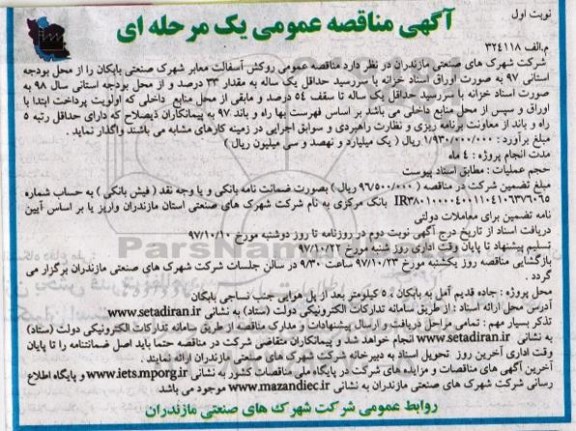 نوبت اول
آگهی مناقصه عمومی یک مرحله ای
م.الف ۳۲۴۱۱۸
شرکت شهرک های صنعتی مازندران در نظر دارد مناقصه عمومی روکش آسفالت معابر شهرک صنعتی بابکان را از محل بودجه
استانی ۹۷ به صورت اوراق اسناد خزانه با سررسید حداقل یک ساله به مقدار ۳۳ درصد و از محل بودجه استانی سال ۹۸ به
صورت اسناد خزانه با سررسید حداقل یک ساله تا سقف ۵۴ درصد و مابقی از محل منابع داخلی که اولویت پرداخت ابتدا با
اوراق و سپس از محل منابع داخلی می باشد بر اساس فهرست بها راه و باند ۹۷ به پیمانکاران ذیصلاح که دارای حداقل رتبه ۵
راه و باند از معاونت برنامه ریزی و نظارت راهبردی و سوابق اجرایی در زمینه کارهای مشابه می باشند واگذار نماید .
مبلغ برآورد : ۱/۹۳۰/۰۰۰/۰۰۰ ریال ( یک میلیارد و نهصد و سی میلیون ریال )
مدت انجام پروژه : ۴ ماه
حجم عملیات : مطابق اسناد پیوست
مبلغ تضمین شرکت در مناقصه ( ۹۶/۵۰۰/۰۰۰ ریال ) بصورت ضمانت نامه بانکی و یا وجه نقد ( فیش بانکی ) به حساب شماره
بانک مرکزی به نام شرکت شهرک های صنعتی استان مازندران واریز یا بر اساس آیین
نامه تضمین برای معاملات دولتی
دریافت اسناد از تاریخ درج آگهی نوبت دوم در روزنامه تا روز دوشنبه مورخ ۹۷/۱۰/۱۰
تسلیم پیشنهاد تا پایان وقت اداری روز شنبه مورخ ۹۷/۱۰/۲۲
بازگشایی مناقصه روز یکشنبه مورخ ۹۷/۱۰/۲۳ ساعت ۹/۳۰ در سالن جلسات شرکت شهرک های صنعتی مازندران برگزار می
گردد .
محل پروژه : جاده قدیم آمل به بابکان ، ۵ کیلومتر بعد از پل هوایی جنب نساجی بابکان
آدرس محل ارائه اسناد : از طریق سامانه تدارکات الکترونیکی دولت (ستاد) به نشانی www.setadiran.ir
تذکر بسیار مهم : تمامی مراحل دریافت و ارسال پیشنهادات و مدارک مناقصه از طریق سامانه تدارکات الکترونیکی دولت (ستاد)
به نشانی www.setadiran.ir انجام خواهد شد و پیمانکاران متقاضی شرکت در مناقصه حتما باید اصل ضمانتنامه را تا پایان
وقت اداری آخرین روز تحویل اسناد به دبیرخانه شرکت شهرک های صنعتی مازندران ارائه نمایند .
آخرین آگهی های مناقصات و مزایده های شرکت در پایگاه ملی مناقصات کشور به نشانی www.iets.mporg.ir و پایگاه اطلاع
رسانی شرکت شهرک های صنعتی مازندران به نشانی www.mazandiec.ir موجود می باشد.
روابط عمومی شرکت شهرک های صنعتی مازندران